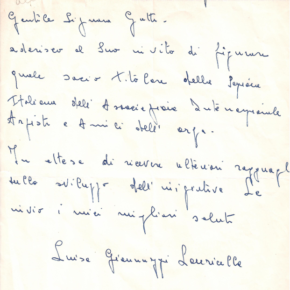 Gentile Signora Gatti.
aderisco al Suo invito di figurare
quale socio titolare della Sezione
Italiana dell'Associazione Internazionale
Artisti e Amici dell'arpa.
In attesa di ricevere ulteriori ragguagli
sullo sviluppo dell'iniziativa Le
invio i miei migliori saluti
Luisa Giannuzzi Lauricella